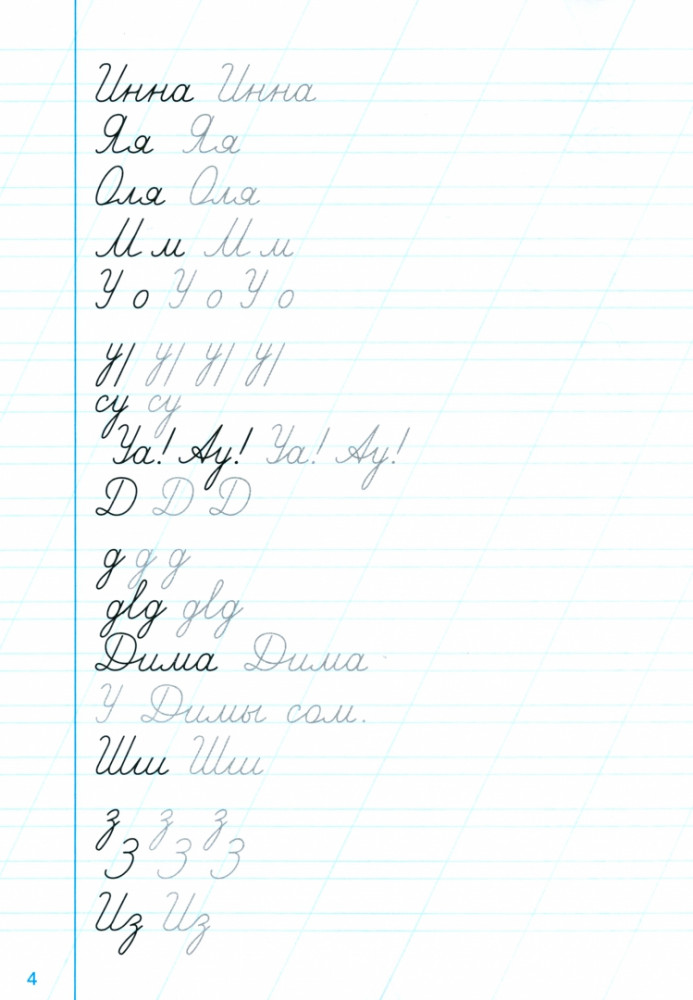 Инна Инна
Яя Яя
Оля Оля
М м М м
У о У о У о
у/ у/ у/ у/
су су
Уа! Ау! Уа! Ау!
Д Д Д
д д д
д д
Дима Дима
У Димы сом.
Шш Шш
з з з
З З З
Из Из
4